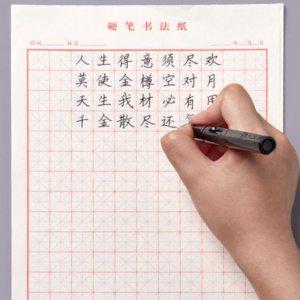 硬笔书法纸
年 月 日
人生得意须尽欢
莫使金樽空对月
天生我材必有用
千金散尽还